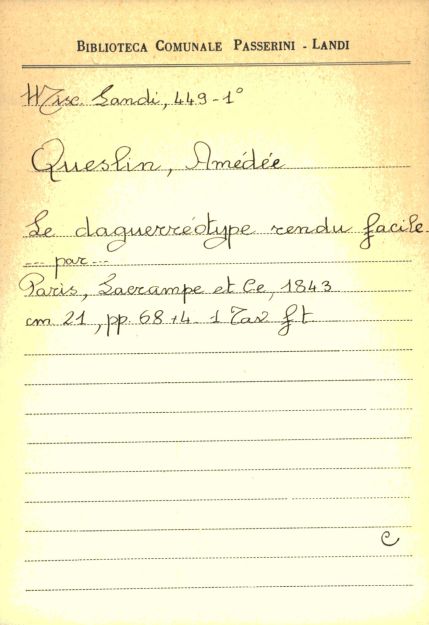 BIBLIOTECA COMUNALE PASSERINI - LANDI
Misc. Landi, 449-1°
Queslin, Amédée
Le daguerréotype rendu facile
... par ...
Paris, Lacrampe et Ce, 1843
cm 21, pp. 68+4 1 Tav ft
C